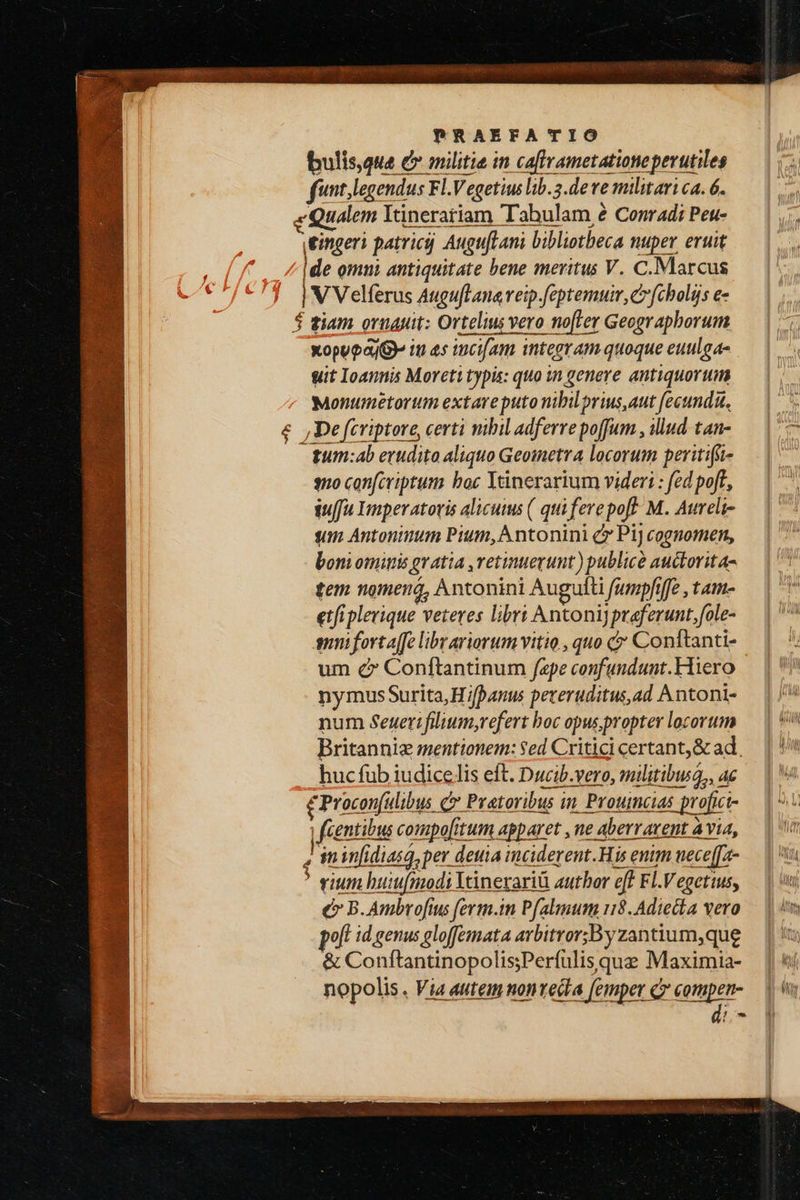 PRAEFATIO
bulis,quæ & militiæ in caſtrametatione perutiles
ſunt,legendus Fl.Vegetius lib.3.de re militari ca. 6.
Qualem Itinerariam Tabulam è Conradi Peu-
tingeri patricij Auguſtani bibliotheca nuper eruit
de omni antiquitate bene meritus V. C.Marcus
VVelſerus Auguſtanæ reip.ſeptemuir,& ſcholijs e-
tiam ornauit: Ortelius vero noſter Geographorum
in æs inciſam integram quoque euulga-
uit Ioannis Moreti typis: quo in genere antiquorum
Monumẽtorum extare puto nihil prius,aut ſecundũ.
De ſcriptore, certi nihil adferre poſſum, illud tan-
tum:ab erudito aliquo Geometra locorum peritiſſi-
mo conſcriptum hoc Itinerarium videri : ſed poſt,
iuſſu Imperatoris alicuius ( qui fere poſt M. Aureli-
um Antoninum Pium,Antonini & Pij cognomen,
boni ominis gratia ,retinuerunt) publicè auctorita-
tem nomenq́, Antonini Auguſti ſumpſiſſe , tam-
etſi plerique veteres libri Antonij præferunt,ſole-
mni fortaſſe librariorum vitio , quo & Conſtanti-
um & Conſtantinum ſæpe confundunt.Hiero
nymus Surita,Hiſpanus pereruditus,ad Antoni-
num Seueri filium,refert hoc opus,propter locorum
Britanniæ mentionem: sed Critici certant,& ad
huc ſub iudice lis eſt. Ducib.vero, militibusq́,, ac
Proconſulibus & Prætoribus in Prouincias profici-
ſcentibus compoſitum apparet , ne aberrarent à via,
in inſidiasq́, per deuia inciderent.His enim neceſſa-
rium huiuſmodi Itinerariũ author eſt Fl.Vegetius,
& B.Ambroſius ſerm.in Pſalmum 118.Adiecta vero
poſt id genus gloſſemata arbitror;Byzantium,que
& Conſtantinopolis;Perſulis,quæ Maximia-
nopolis. Via autem non recta ſemper & compen-
di -